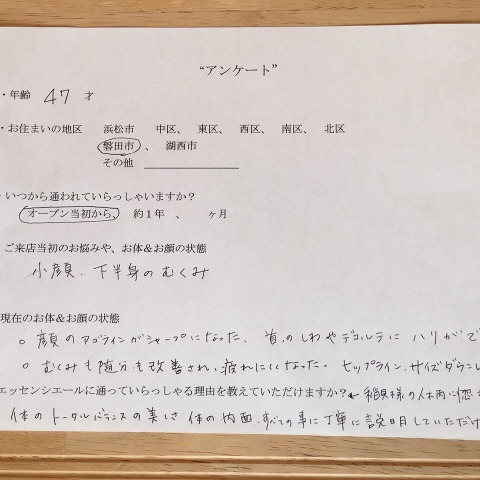 “アンケート”
・年齢 47 才
・お住まいの地区 浜松市 中区、 東区、 西区、 南区、 北区
磐田市 、 湖西市
その他
・いつから通われていらっしゃいますか?
オープン当初から、 約1年 、 ヶ月
ご来店当初のお悩みや、お体&お顔の状態
小顔、下半身のむくみ
現在のお体&お顔の状態
○ 顔のアゴラインがシャープになった、首のしわやデコルテにハリがで
○ むくみも随分も改善され、疲れにくくなった。ヒップライン、サイズダウン
エッセンシエールに通っていらっしゃる理由を教えていただけますか?
体のトータルバランスの美しさ 体の内面、すべての事に丁寧に説明していただけ